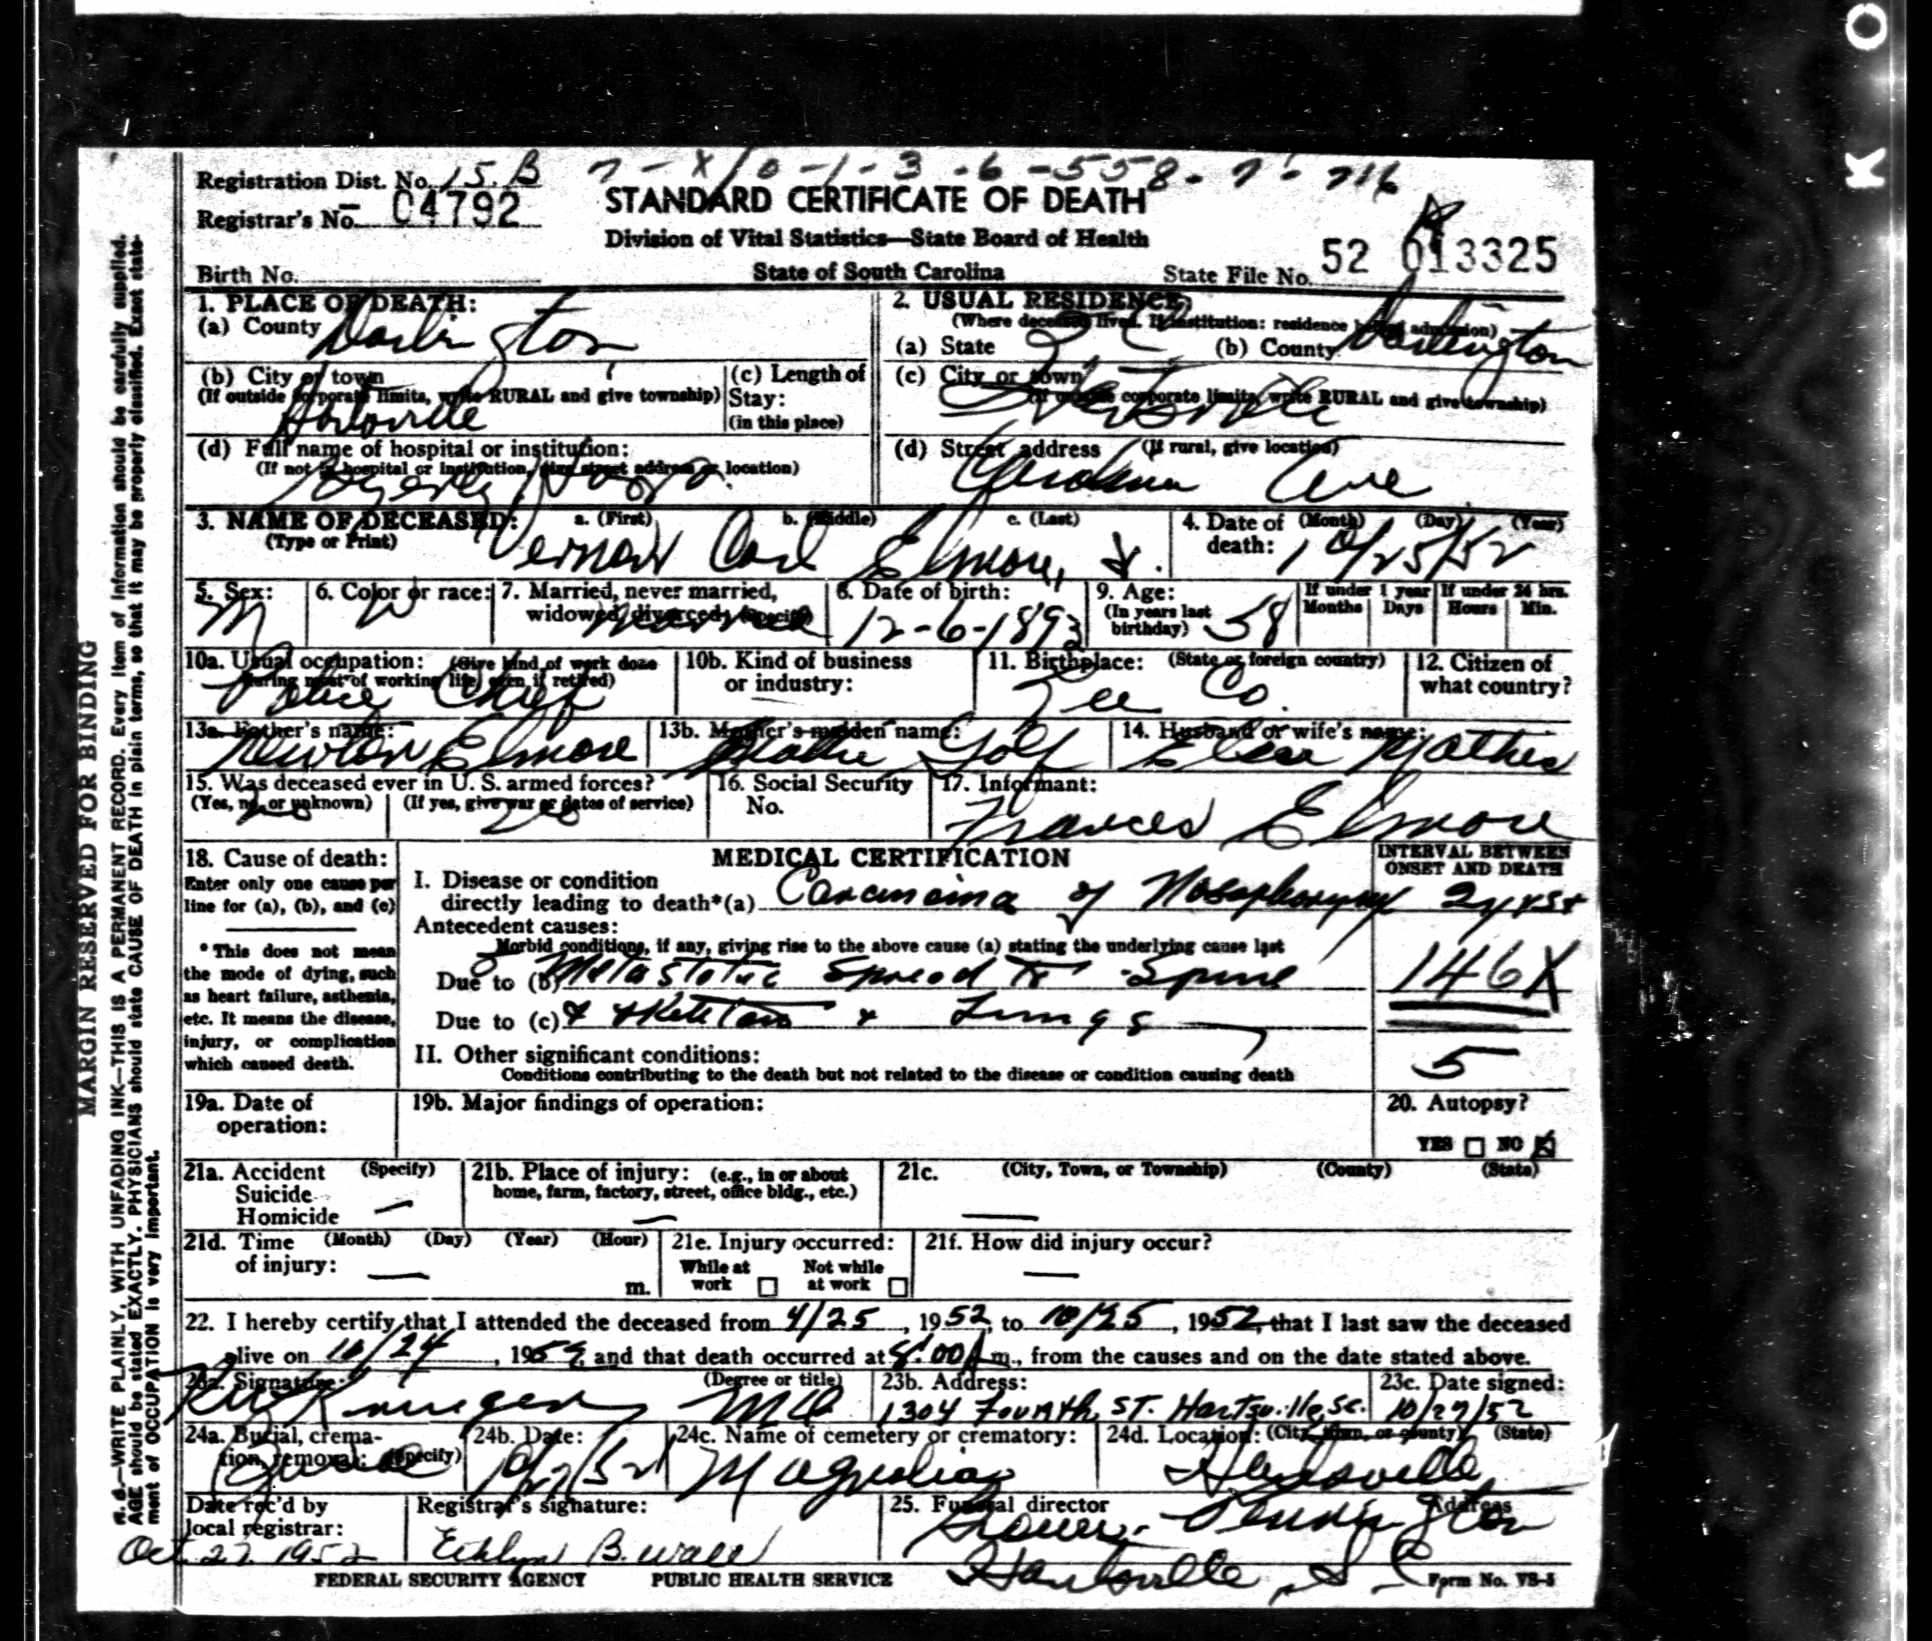 K O
Registration Dist. No. 15.B
7 - X / 0 - 1 - 3 - 6 - 558 - 7 - 716
Registrar's No. 04792
STANDARD CERTIFICATE OF DEATH
Division of Vital Statistics—State Board of Health
State of South Carolina
Birth No.
State File No. 52 013325
MARGIN RESERVED FOR BINDING
N. B.—WRITE PLAINLY, WITH UNFADING INK—THIS IS A PERMANENT RECORD. Every item of information should be carefully supplied.
AGE should be stated EXACTLY. PHYSICIANS should state CAUSE OF DEATH in plain terms, so that it may be properly classified. Exact state-
ment of OCCUPATION is very important.
1. PLACE OF DEATH:
(a) County Darlington
2. USUAL RESIDENCE
(Where deceased lived. If institution: residence before admission)
(a) State S C (b) County Darlington
(b) City or town
(If outside corporate limits, write RURAL and give township)
Hartsville
(c) Length of
Stay:
(in this place)
(c) City or town
(If outside corporate limits, write RURAL and give township)
Hartsville
(d) Full name of hospital or institution:
(If not in hospital or institution, give street address or location)
Byerly Hosp.
(d) Street address (If rural, give location)
Carolina Ave
3. NAME OF DECEASED: a. (First) b. (Middle) c. (Last)
(Type or Print) Vernon Carl Elmore, Sr.
4. Date of (Month) (Day) (Year)
death: 10/25/52
5. Sex: M
6. Color or race: W
7. Married, never married,
widowed, divorced: (Specify)
Married
8. Date of birth:
12-6-1893
9. Age:
(In years last
birthday) 58
If under 1 year
Months Days
If under 24 hrs.
Hours Min.
10a. Usual occupation: (Give kind of work done
during most of working life, even if retired)
Police Chief
10b. Kind of business
or industry:
11. Birthplace: (State or foreign country)
Lee Co.
12. Citizen of
what country?
13a. Father's name:
Newton Elmore
13b. Mother's maiden name:
14. Husband or wife's name:
Mathis
15. Was deceased ever in U. S. armed forces?
(Yes, no, or unknown) (If yes, give war or dates of service)
no
16. Social Security
No.
17. Informant:
Frances Elmore
18. Cause of death:
Enter only one cause per
line for (a), (b), and (c)
* This does not mean
the mode of dying, such
as heart failure, asthenia,
etc. It means the disease,
injury, or complication
which caused death.
MEDICAL CERTIFICATION
INTERVAL BETWEEN
ONSET AND DEATH
I. Disease or condition
directly leading to death*(a) Carcinoma of Nasopharynx 2 yrs+
Antecedent causes:
Morbid conditions, if any, giving rise to the above cause (a) stating the underlying cause last
Due to (b) Metastatic Spread to Spine
146X
Due to (c) & Skeleton & Lungs
5
II. Other significant conditions:
Conditions contributing to the death but not related to the disease or condition causing death
19a. Date of
operation:
19b. Major findings of operation:
20. Autopsy?
YES NO X
21a. Accident (Specify)
Suicide
Homicide —
21b. Place of injury: (e.g., in or about
home, farm, factory, street, office bldg., etc.)
—
21c. (City, Town, or Township) (County) (State)
—
21d. Time (Month) (Day) (Year) (Hour)
of injury: — m.
21e. Injury occurred:
While at Not while
work at work
21f. How did injury occur?
—
22. I hereby certify that I attended the deceased from 4/25, 1952, to 10/25, 1952, that I last saw the deceased
alive on 10/24, 1952, and that death occurred at 8:00 A m., from the causes and on the date stated above.
23a. Signature: (Degree or title)
MD
23b. Address:
1304 Fourth ST. Hartsville, SC.
23c. Date signed:
10/27/52
24a. Burial, crema-
tion, removal: (Specify)
Burial
24b. Date:
24c. Name of cemetery or crematory:
Magnolia
24d. Location: (City, town, or county) (State)
Hartsville
Date rec'd by
local registrar:
Oct. 27. 1952
Registrar's signature:
B. Wall
25. Funeral director Address
Hartsville, S. C.
FEDERAL SECURITY AGENCY PUBLIC HEALTH SERVICE Form No. VS-5